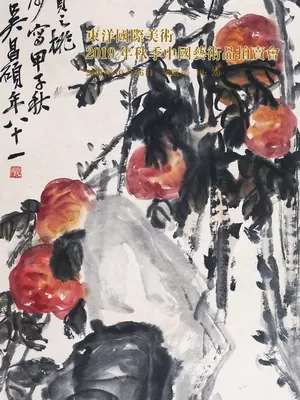 東洋國際美術
2019年秋季中國藝術品拍賣會
實之桃
寫甲子秋
吳昌碩年八十一